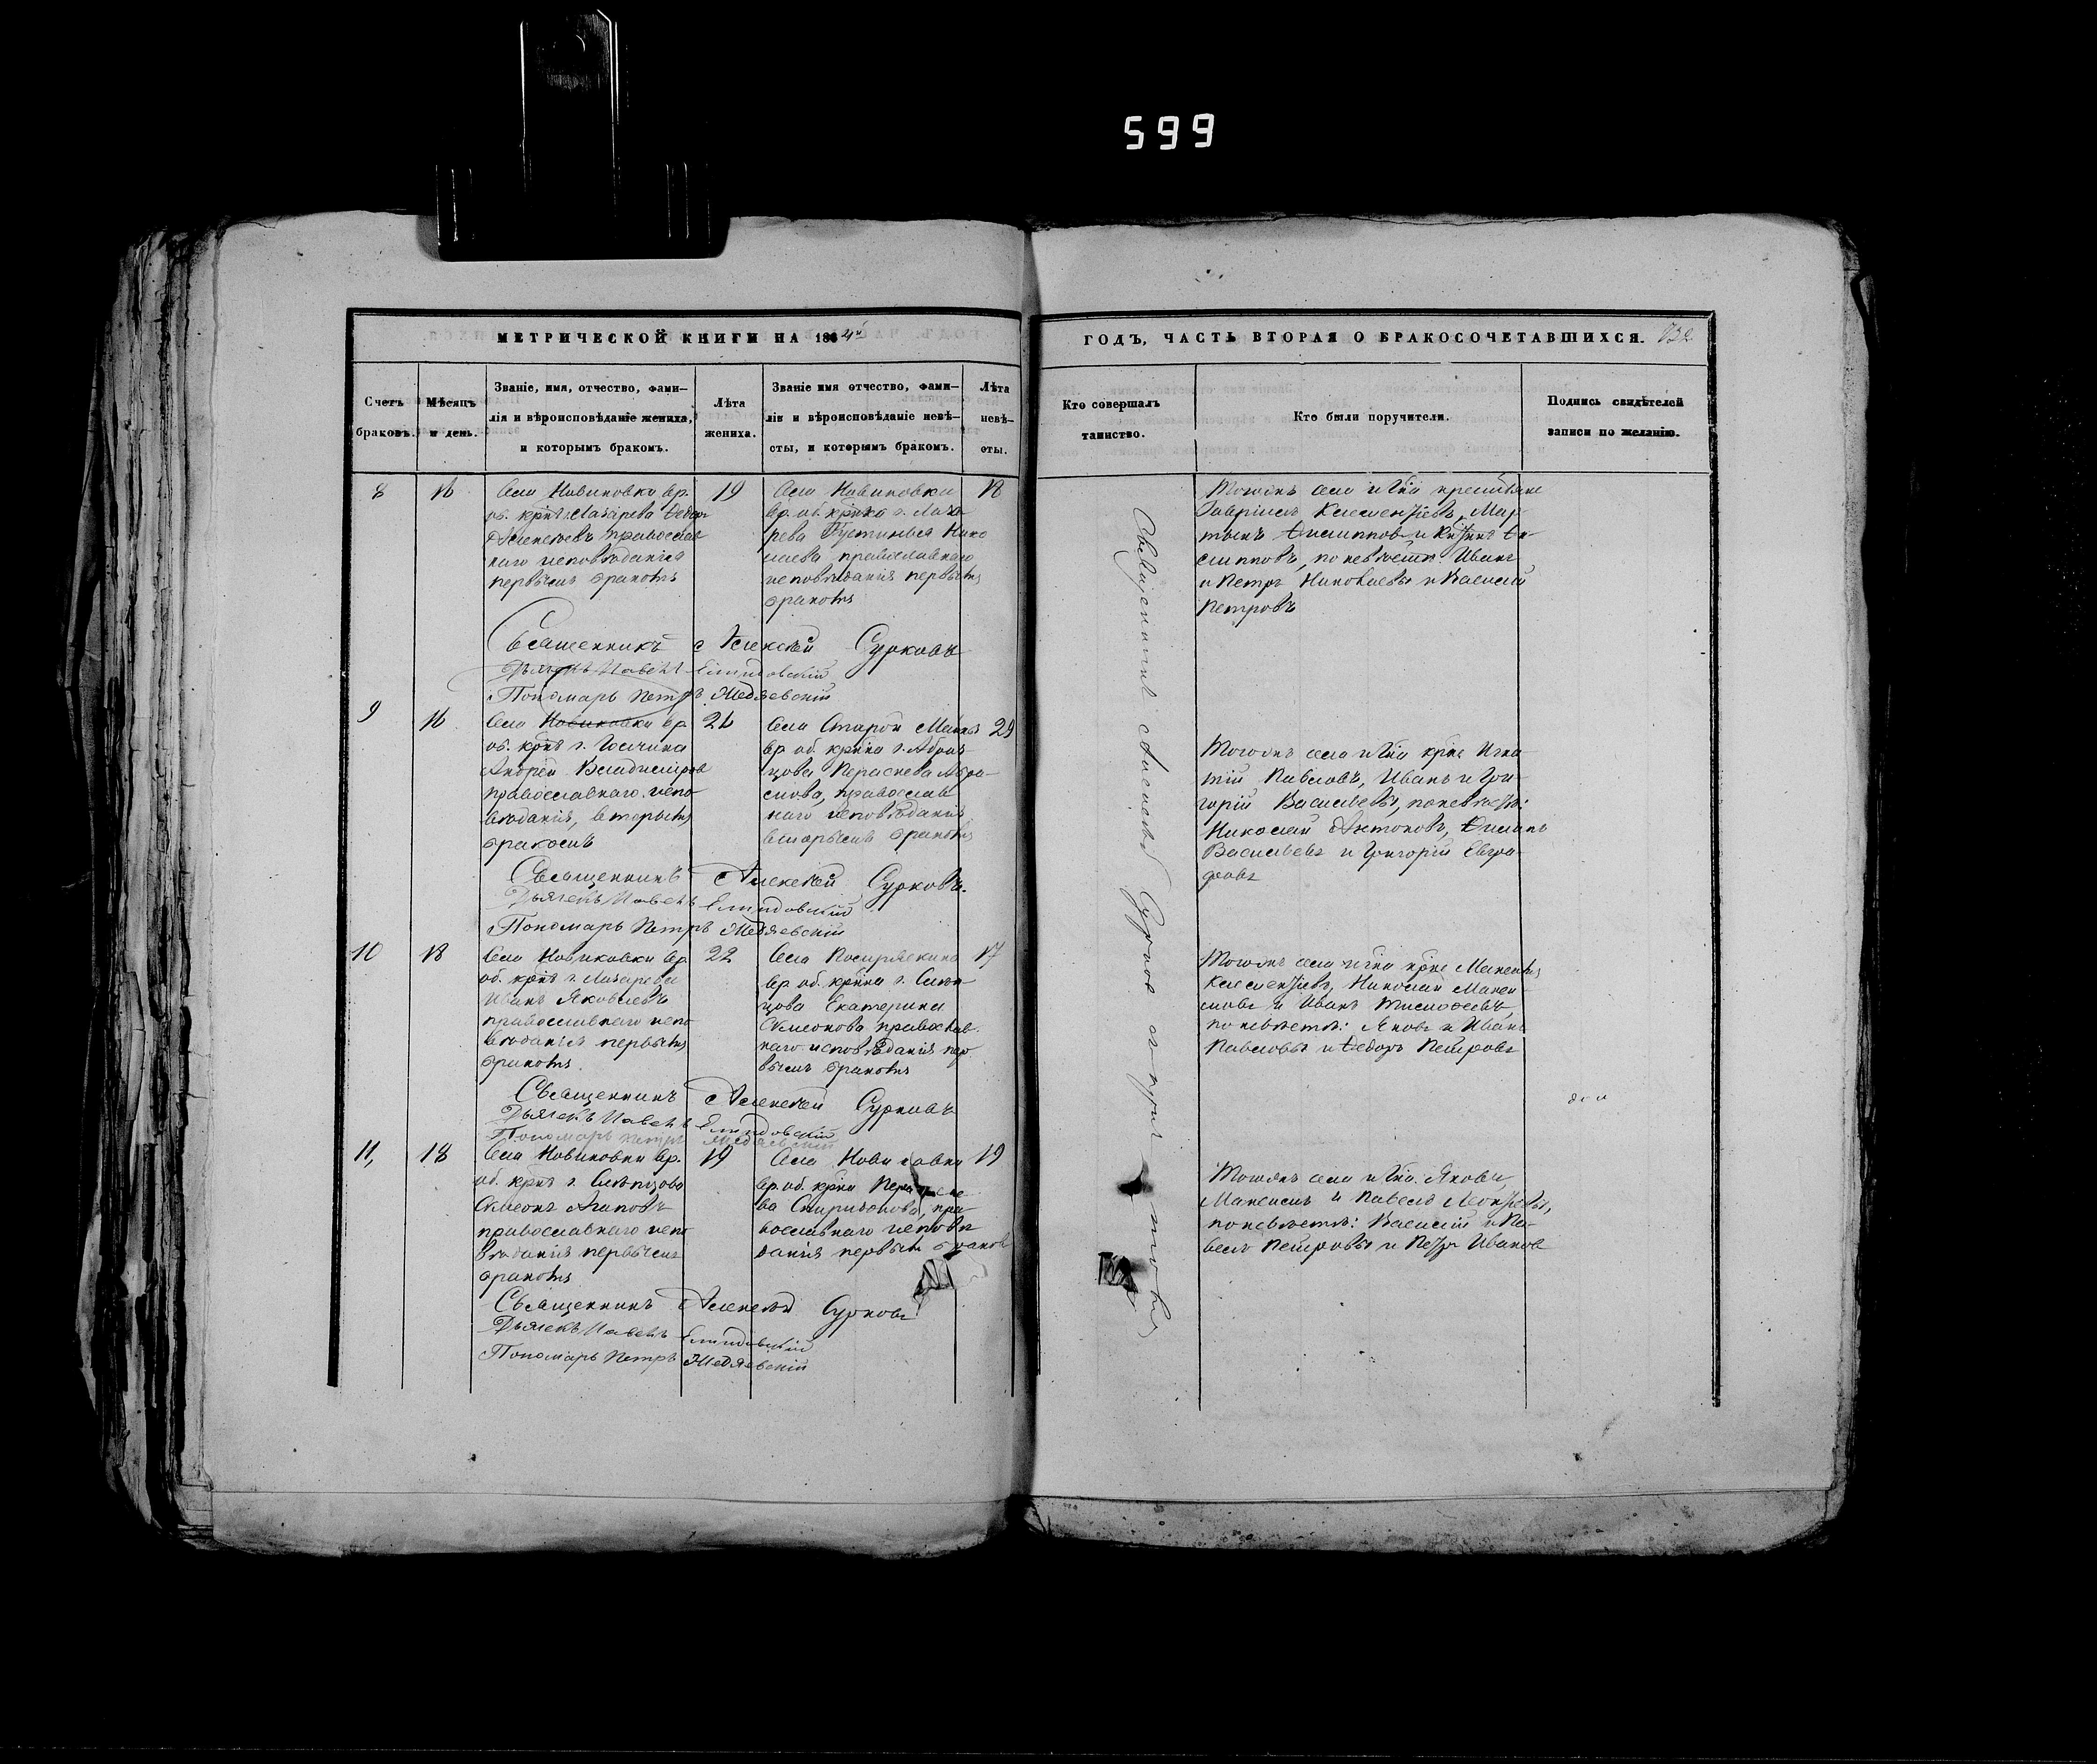 599
МЕТРИЧЕСКОЙ КНИГИ НА 1864й
ГОДЪ, ЧАСТЬ ВТОРАЯ О БРАКОСОЧЕТАВШИХСЯ. 132
Счетъ
браковъ.
Мѣсяцъ
и день.
Званіе, имя, отчество, фами-
лія и вѣроисповѣданіе жениха,
и которымъ бракомъ.
Лѣта
жениха.
Званіе имя отчество, фами-
лія и вѣроисповѣданіе невѣ-
сты, и которымъ бракомъ.
Лѣта
невѣ-
сты.
Кто совершалъ
таинство.
Кто были поручители.
Подпись свидѣтелей
записи по желанію.
8
16
Села Новиковки вр.
об. крнъ г. Лазарева Ѳедоръ
Алексѣевъ православ
наго исповѣданія
первымъ бракомъ
19
Села Новиковки
вр. об. крнка г. Лаза
рева Устинья Нико
лаева православнаго
исповѣданія первымъ
бракомъ
18
Тогожъ села и Гна крестьяне
Гаврилъ Клементьевъ, Мар-
тынъ Филипповъ и Ѳи-
липповъ, по невѣстѣ: Иванъ
и Петръ Николаевы и Василій
Петровъ
Священникъ Алексѣй Сурковъ
Дьячекъ Павелъ
Пономарь Петръ Медяевскій
9
16
Села Новиковки вр
об. крнъ г.
Андрей Владиміров
православнаго испо
вѣданія, вторымъ
бракомъ
Села Старой Маины
вр об. крнка г. Абрам
цова Параскева Абра-
мова, православ
наго исповѣданія
вторымъ бракомъ
29
Тогожъ села и Гна крне Игна-
тій Павловъ, Иванъ и Гри-
горій Васильевы, по невѣстѣ:
Николай Антоновъ, Филипъ
Васильевъ и Григорій Евгра-
фовъ
Священникъ Алексѣй Сурковъ.
Дьячекъ Павелъ
Пономарь Петръ Медяевскій
10
18
Села Новиковки вр
об. крнъ г. Лазарева
Иванъ Яковлевъ
православнаго испо
вѣданія первымъ
бракомъ
22
Села
вр об. крнка г. Слѣп
цова Екатерина
Симеонова православ.
наго исповѣданія пер
вымъ бракомъ
17
Тогожъ села и Гна крне Максимъ
Клементьевъ, Николай Макси
мовъ и Иванъ Тимофеевъ,
по невѣстѣ: Яковъ и Иванъ
Павловы и Ѳедоръ Петровъ
Священникъ Алексѣй Сурковъ
Дьячекъ Павелъ
Пономарь Петръ Медяевскій
11,
18
Села Новиковки вр.
об. крнъ г. Слѣпцова
Симеонъ Агаповъ
православнаго испо
вѣданія первымъ
бракомъ
19
Села Новиковки
вр. об. крнка Параске
ва Спиридонова, пра-
вославнаго исповѣ
данія первымъ браком
19
Тогожъ села и Гна. Яковъ,
Максимъ и Павелъ Леонтьевы,
по невѣстѣ: Василій и Па-
велъ Петровы и Петръ Иванов
Священникъ Алексѣй Сурковъ
Дьячекъ Павелъ
Пономарь Петръ Медяевскій
Священникъ Алексѣй Сурков с причтомъ